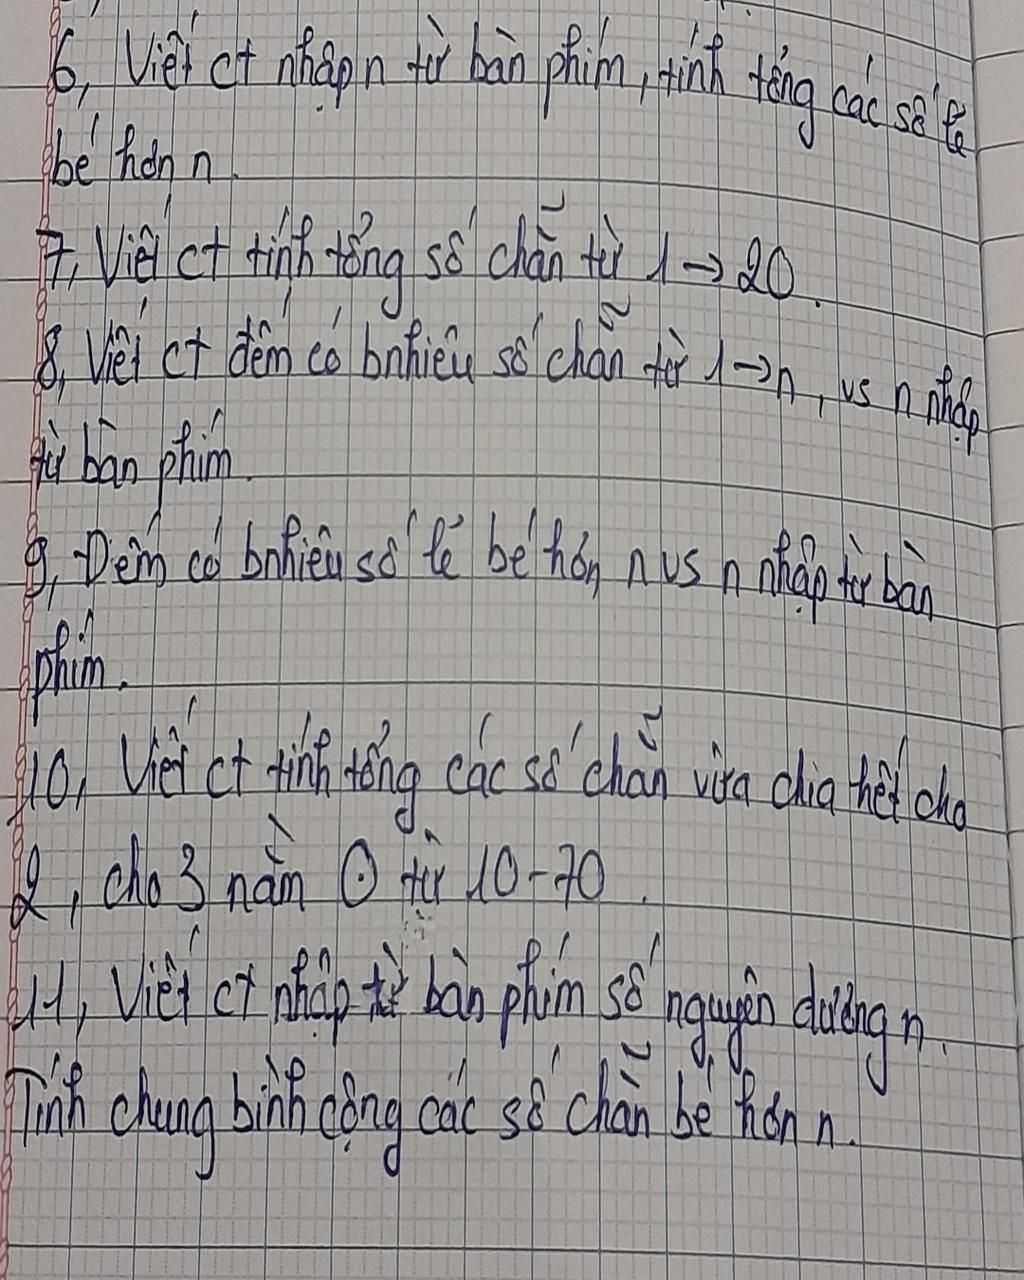 6, Viết ct nhập n từ bàn phím, tính tổng các số lẻ
bé hơn n.
7, Viết ct tính tổng số chẵn từ 1 → 20.
8, Viết ct đếm có bnhiêu số chẵn từ 1 → n, vs n nhập
từ bàn phím.
9, Đếm có bnhiêu số lẻ bé hơn n vs n nhập từ bàn
phím.
10, Viết ct tính tổng các số chẵn vừa chia hết cho
2, cho 3 nằm ⊙ từ 10-70.
11, Viết ct nhập từ bàn phím số nguyên dương n.
Tính chung bình cộng các số chẵn bé hơn n.